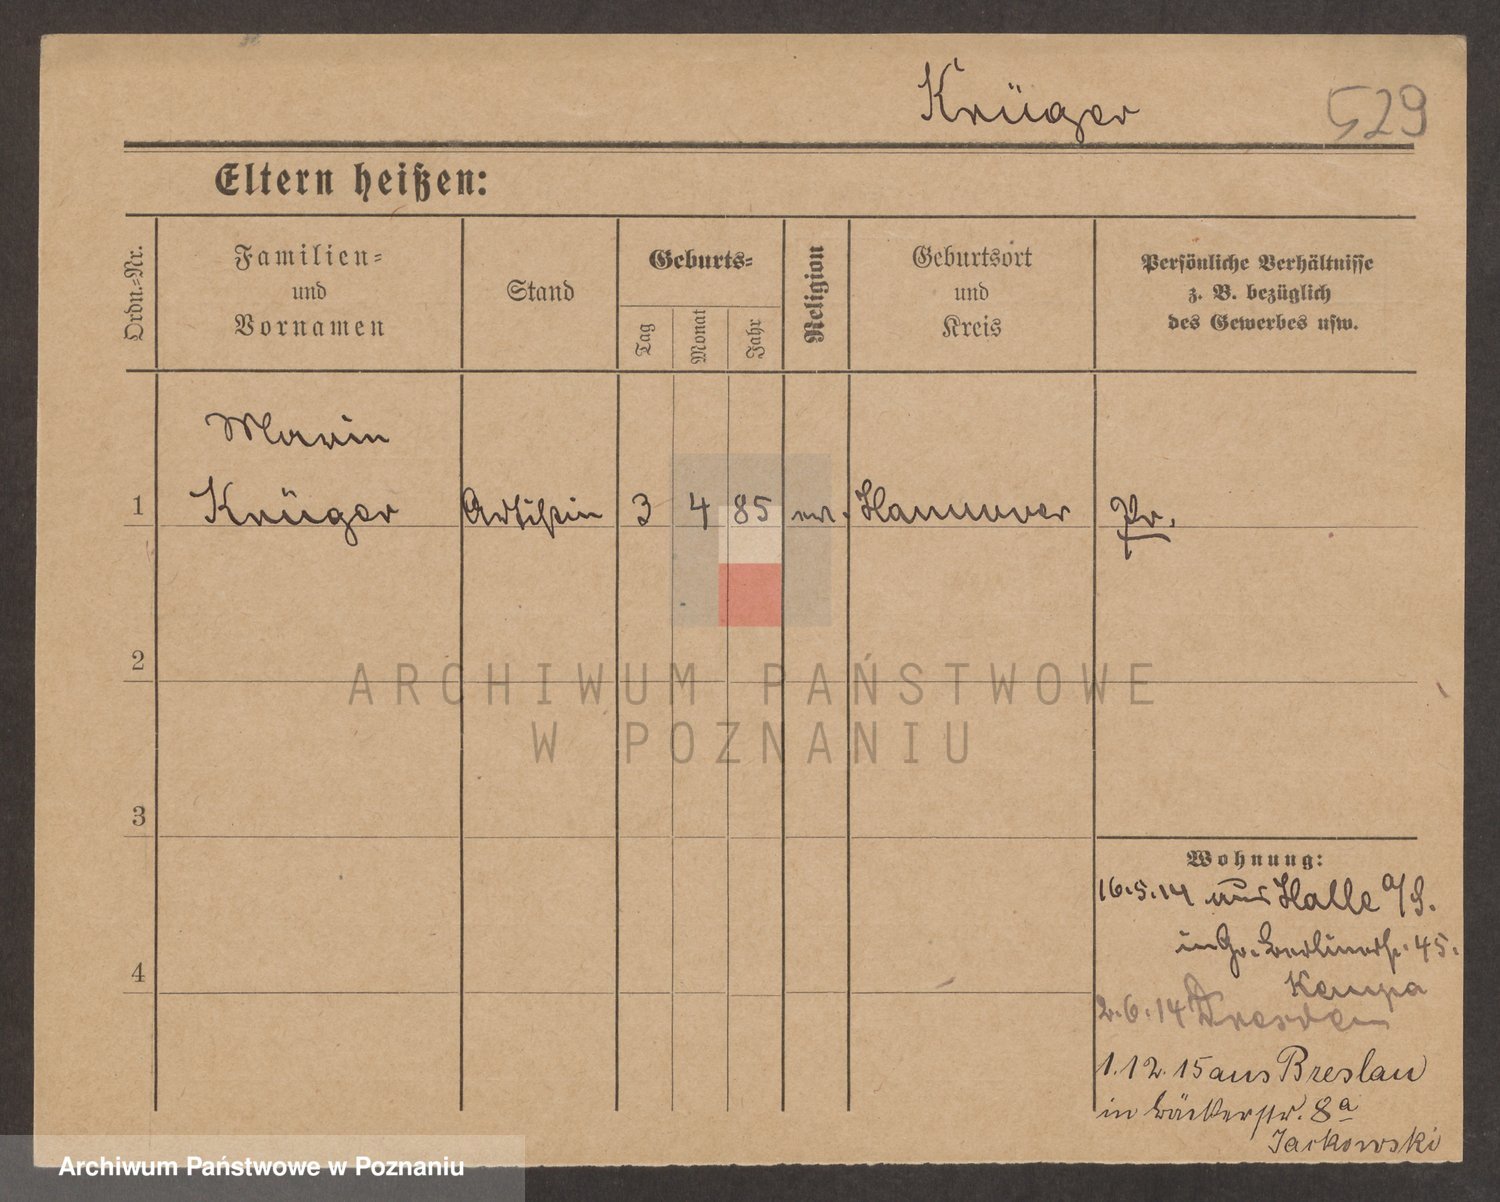 Krüger 529
Eltern heißen:
Ordn.-Nr.
Familien-
und
Vornamen
Stand
Geburts-
Tag
Monat
Jahr
Religion
Geburtsort
und
Kreis
Persönliche Verhältnisse
z. B. bezüglich
des Gewerbes usw.
Marie
1 Krüger Artistin 3 4 85 ev. Hannover Pr.
2
3
4
Wohnung:
16.5.14 aus Halle a/S.
in Gr. Berlinerstr. 45.
Kempa
2.6.14 Dresden
1.12.15 aus Breslau
in Bäckerstr. 8a
Jackowski
ARCHIWUM PAŃSTWOWE
W POZNANIU
Archiwum Państwowe w Poznaniu